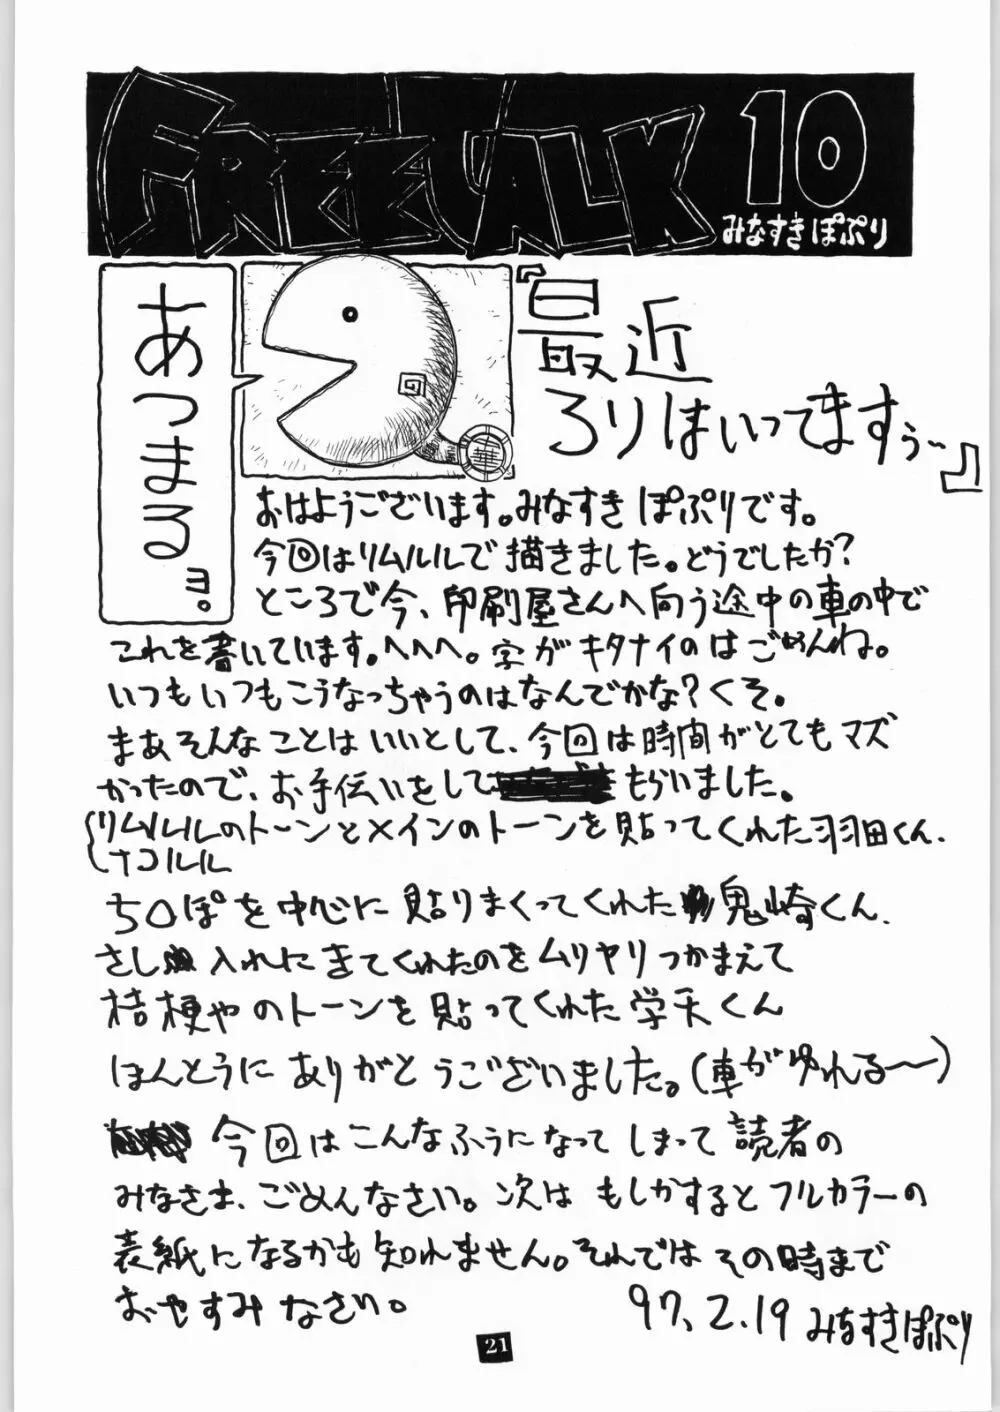 FREETALK 10
みなすきぽぷり
あつまるョ。
回
中華
『最近
ろりはいってますぅ〜』
おはようございます。みなすきぽぷりです。
今回はリムルルで描きました。どうでしたか?
ところで今、印刷屋さんへ向う途中の車の中で
これを書いています。へへへ。字がキタナイのはごめんね。
いつもいつもこうなっちゃうのはなんでかな?くそ。
まあそんなことはいいとして、今回は時間がとてもマズ
かったので、お手伝いをしてもらいました。
リムルルのトーンとメインのトーンを貼ってくれた羽田くん、
ナコルル
ち○ぽを中心に貼りまくってくれた鬼崎くん、
さし入れにきてくれたのをムリヤリつかまえて
桔梗やのトーンを貼ってくれた学天くん
ほんとうにありがとうございました。(車がゆれる〜)
今回はこんなふうになってしまって読者の
みなさま、ごめんなさい。次はもしかするとフルカラーの
表紙になるかも知れません。それではその時まで
おやすみなさい。 97.2.19 みなすきぽぷり
21